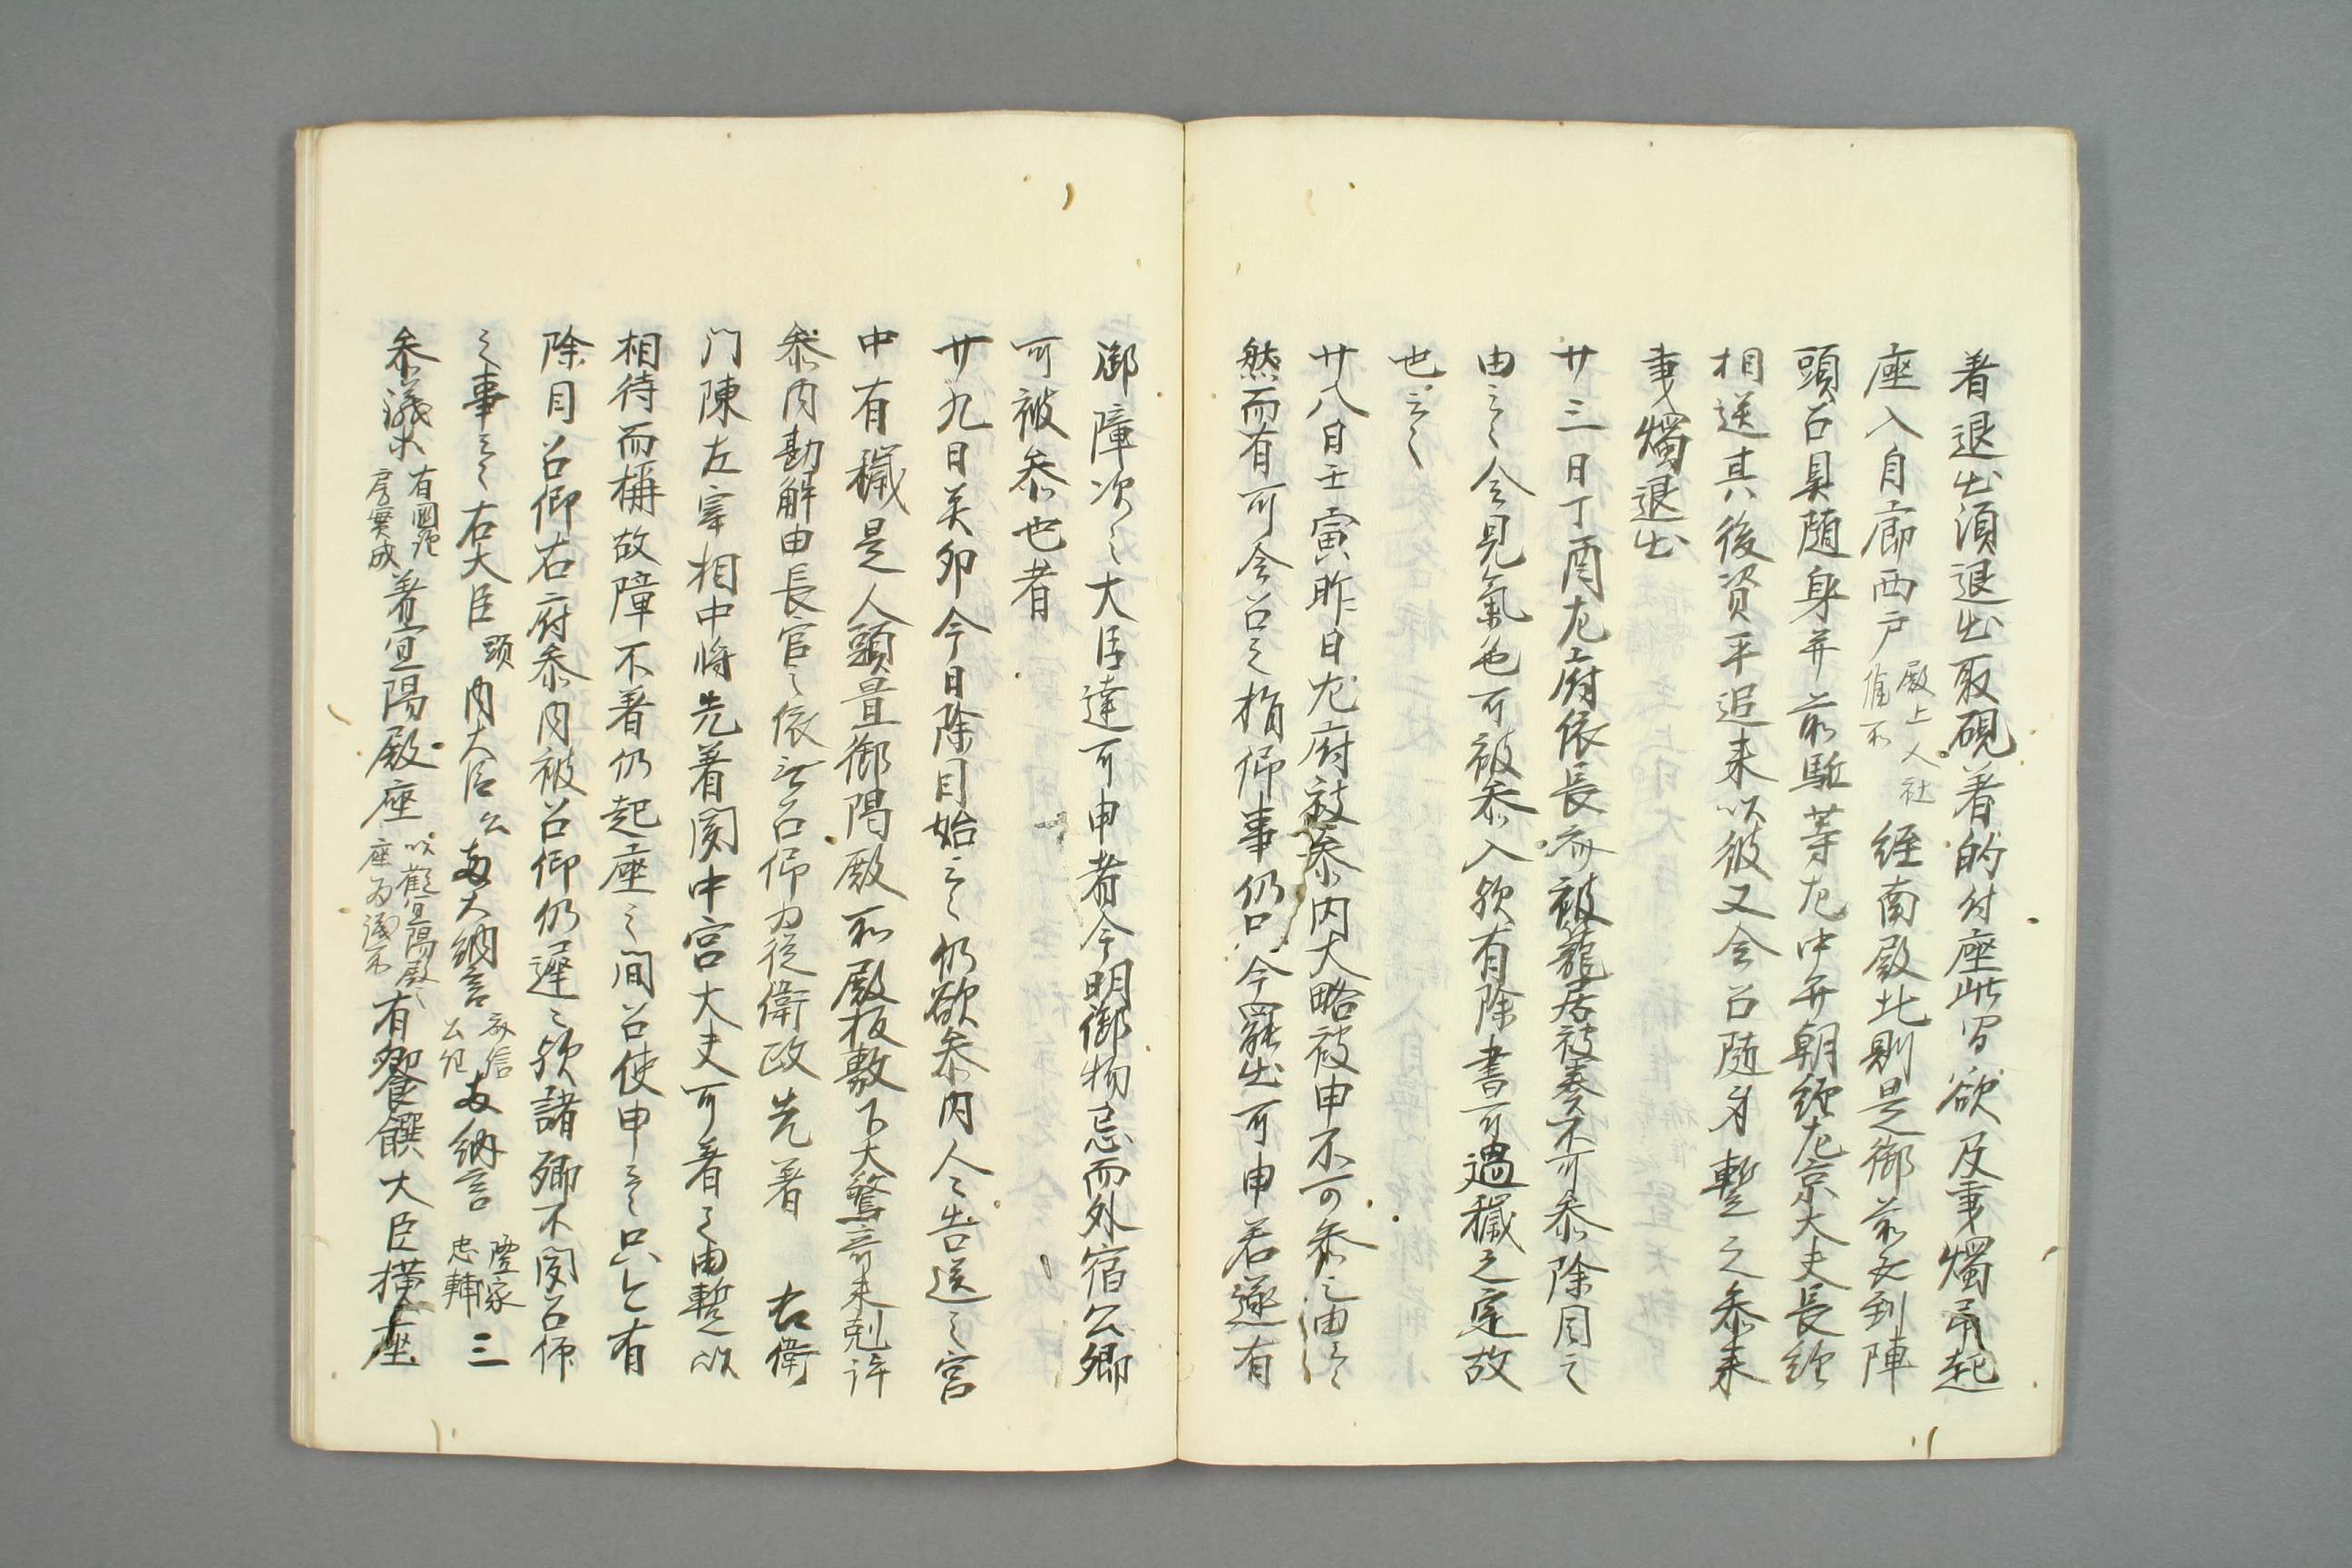 着退出須退出取硯着的付座此間欲及秉燭予起
座入自廊西戸殿上人社経南殿北則是御前又到陣
頭召具随身并前駈等左中弁朝経左京大夫長経
相送其後資平追来以彼又令召随身暫之参来
秉燭退出
廿三日丁酉左府依長斎被籠居被奏不可参除目之
由云々令見氣色可被参入歟有除書可遇穢之定故
也云々
廿八日壬寅昨日左府被参内大略被申不可参之由云々
然而有可令召之指仰事仍只今罷出可申若遂有
御障次々大臣達可申者今明御物忌而外宿公卿
可被参也者
廿九日癸卯今日除目始云々仍欲参内人々告送云宮
中有穢是人頭置御陽殿不殿板敷下大驚奇未剋許
参内勘解由長官々依無召仰力従衛政先着右衛
門陳左宰相中将先着関中宮大夫可着之由暫以
相待而称故障不着仍起座之間召使申云只今有
除目召仰右府参内被召仰仍遅々歟諸卿不関召仰
之事云々右大臣顕内大臣公両大納言斉信公任両納言隆家忠輔三
参議有国房実成着宜陽殿座有饗饌大臣横座